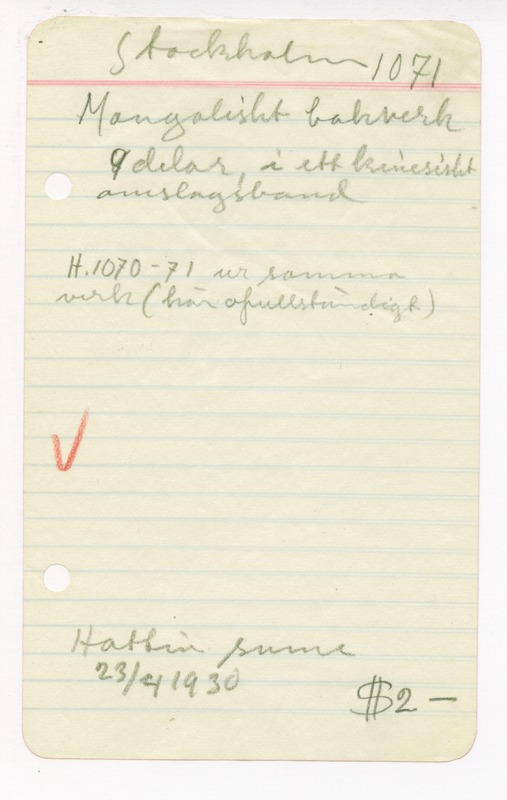 Stockholm 1071
Mongoliskt bokverk
9 delar, i ett kinesiskt
omslagsband
H.1070-71 ur samma
verk (här ofullständigt)
Hattin sume
23/4 1930
$2 —